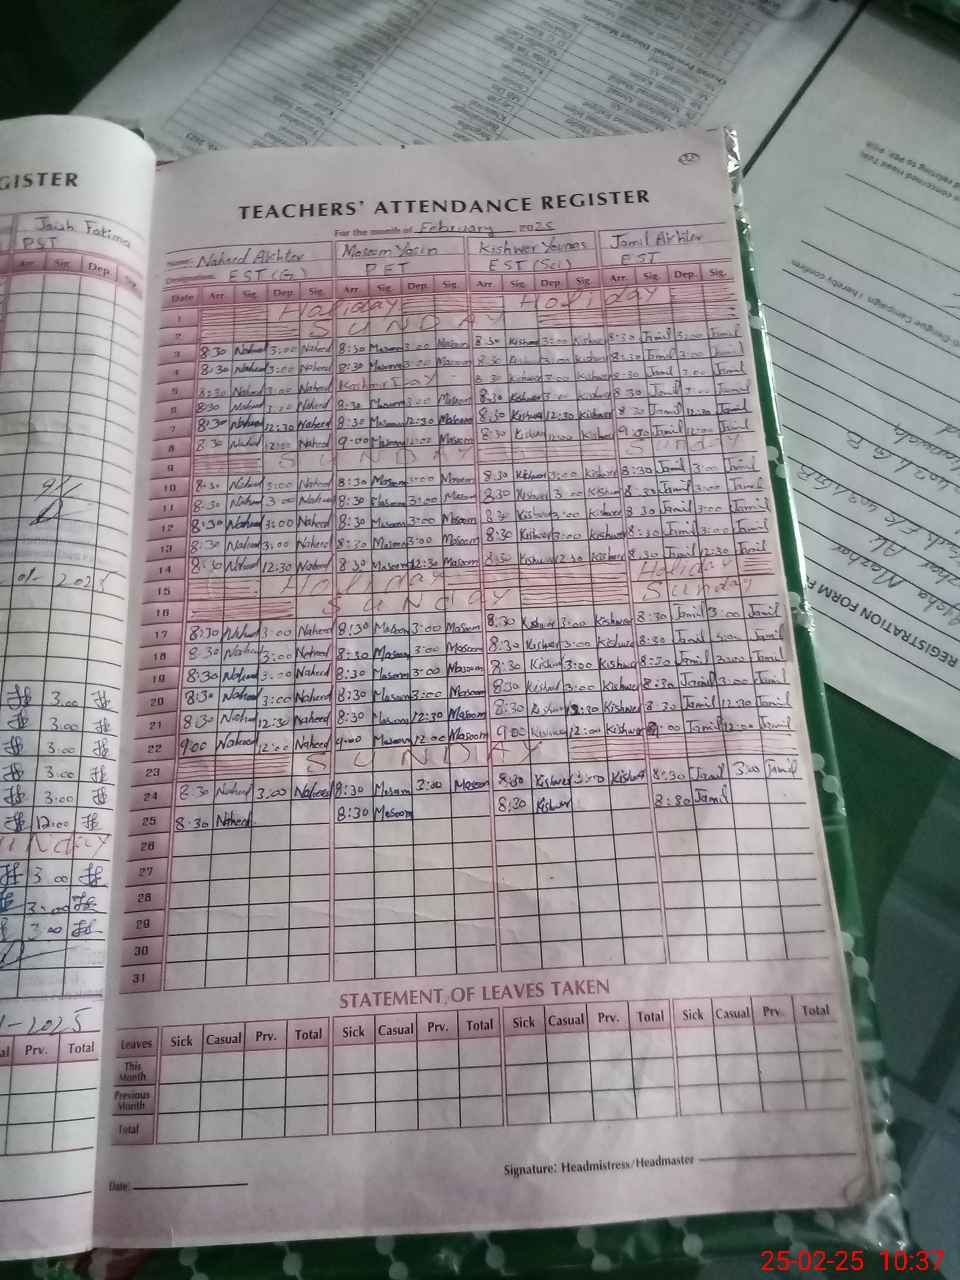 GISTER
Jaish Fatima
PST
Arr. Sig. Dep. Sig.
32
TEACHERS' ATTENDANCE REGISTER
For the month of February 2025
Name: Naheed Akhter Masoom Yasin Kishwer Younas Jamil Akhter
Designation: EST (G) PET EST (Sci) EST
Date Arr. Sig. Dep. Sig. Arr. Sig. Dep. Sig. Arr. Sig. Dep. Sig. Arr. Sig. Dep. Sig.
1 Holiday Holiday
2 SUNDAY
3 8:30 Naheed 3:00 Naheed 8:30 Masoom 3:00 Masoom 8:30 Kishwer 3:00 Kishwer 8:30 Jamil 3:00 Jamil
4 8:30 Naheed 3:00 Naheed 8:30 Masoom 3:00 Masoom 8:30 Kishwer 3:00 Kishwer 8:30 Jamil 3:00 Jamil
5 8:30 Naheed 3:00 Naheed Kashmir Day 8:30 Kishwer 3:00 Kishwer 8:30 Jamil 3:00 Jamil
6 8:30 Naheed 3:00 Naheed 8:30 Masoom 3:00 Masoom 8:30 Kishwer 3:00 Kishwer 8:30 Jamil 3:00 Jamil
7 8:30 Naheed 12:30 Naheed 8:30 Masoom 12:30 Masoom 8:30 Kishwer 12:30 Kishwer 8:30 Jamil 12:30 Jamil
8 8:30 Naheed 12:00 Naheed 9:00 Masoom 12:00 Masoom 8:30 Kishwer 12:00 Kishwer 9:00 Jamil 12:00 Jamil
9 SUNDAY Sunday
10 8:30 Naheed 3:00 Naheed 8:30 Masoom 3:00 Masoom 8:30 Kishwer 3:00 Kishwer 8:30 Jamil 3:00 Jamil
11 8:30 Naheed 3:00 Naheed 8:30 Masoom 3:00 Masoom 8:30 Kishwer 3:00 Kishwer 8:30 Jamil 3:00 Jamil
12 8:30 Naheed 3:00 Naheed 8:30 Masoom 3:00 Masoom 8:30 Kishwer 3:00 Kishwer 8:30 Jamil 3:00 Jamil
13 8:30 Naheed 3:00 Naheed 8:30 Masoom 3:00 Masoom 8:30 Kishwer 3:00 Kishwer 8:30 Jamil 3:00 Jamil
14 8:30 Naheed 12:30 Naheed 8:30 Masoom 12:30 Masoom 8:30 Kishwer 12:30 Kishwer 8:30 Jamil 12:30 Jamil
15 Holiday Holiday
16 SUNDAY Sunday
17 8:30 Naheed 3:00 Naheed 8:30 Masoom 3:00 Masoom 8:30 Kishwer 3:00 Kishwer 8:30 Jamil 3:00 Jamil
18 8:30 Naheed 3:00 Naheed 8:30 Masoom 3:00 Masoom 8:30 Kishwer 3:00 Kishwer 8:30 Jamil 3:00 Jamil
19 8:30 Naheed 3:00 Naheed 8:30 Masoom 3:00 Masoom 8:30 Kishwer 3:00 Kishwer 8:30 Jamil 3:00 Jamil
20 8:30 Naheed 3:00 Naheed 8:30 Masoom 3:00 Masoom 8:30 Kishwer 3:00 Kishwer 8:30 Jamil 3:00 Jamil
21 8:30 Naheed 12:30 Naheed 8:30 Masoom 12:30 Masoom 8:30 Kishwer 12:30 Kishwer 8:30 Jamil 12:30 Jamil
22 9:00 Naheed 12:00 Naheed 9:00 Masoom 12:00 Masoom 9:00 Kishwer 12:00 Kishwer 9:00 Jamil 12:00 Jamil
23 SUNDAY
24 8:30 Naheed 3:00 Naheed 8:30 Masoom 3:00 Masoom 8:30 Kishwer 3:00 Kishwer 8:30 Jamil 3:00 Jamil
25 8:30 Naheed 8:30 Masoom 8:30 Kishwer 8:30 Jamil
26
27
28
29
30
31
3:00
3:00
3:00
3:00
3:00
12:00
3:00
3:00
3:00
STATEMENT OF LEAVES TAKEN
Leaves Sick Casual Prv. Total Sick Casual Prv. Total Sick Casual Prv. Total Sick Casual Prv. Total
This Month
Previous Month
Total
Prv. Total
Date:
Signature: Headmistress/Headmaster
REGISTRATION FORM F
25-02-25 10:37